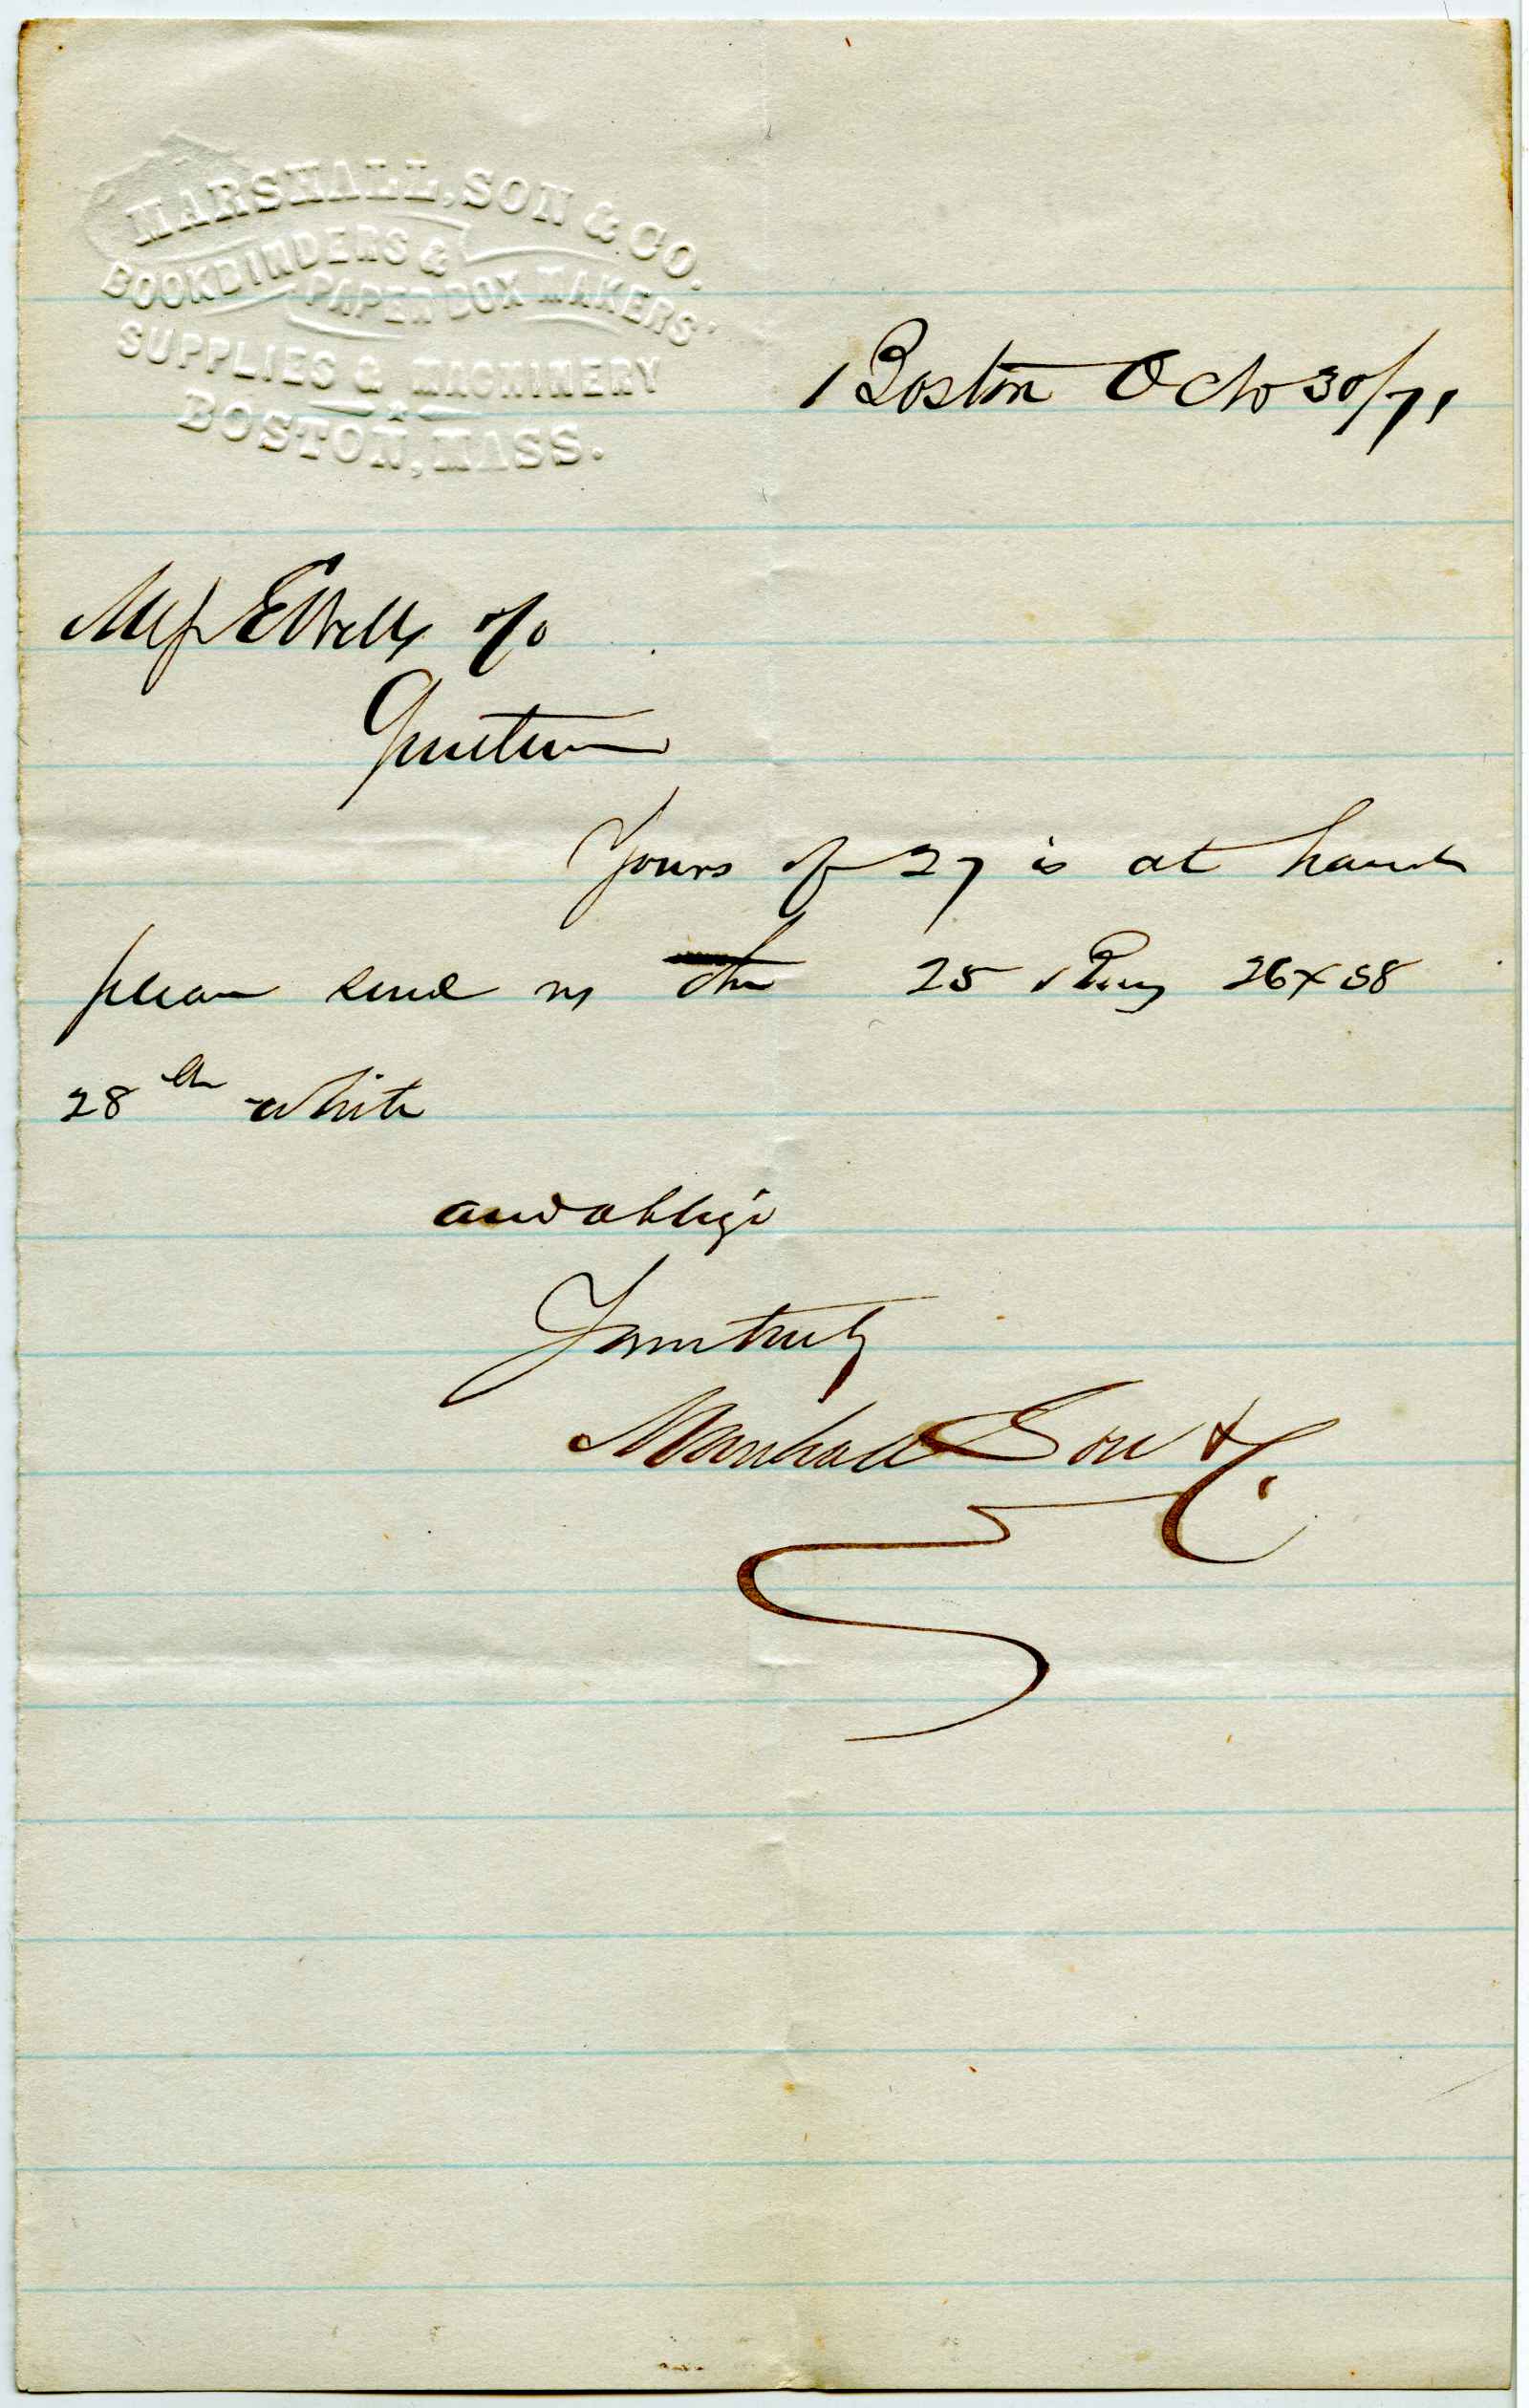 MARSHALL, SON & CO.
BOOKBINDERS &
PAPER BOX MAKERS'
SUPPLIES & MACHINERY
BOSTON, MASS.
Boston Octo 30/71
Gentlemen
Yours of 27 is at hand
please send us the 25 26x38
28 lb white
and oblige
Yours truly
Marshall Son & Co.